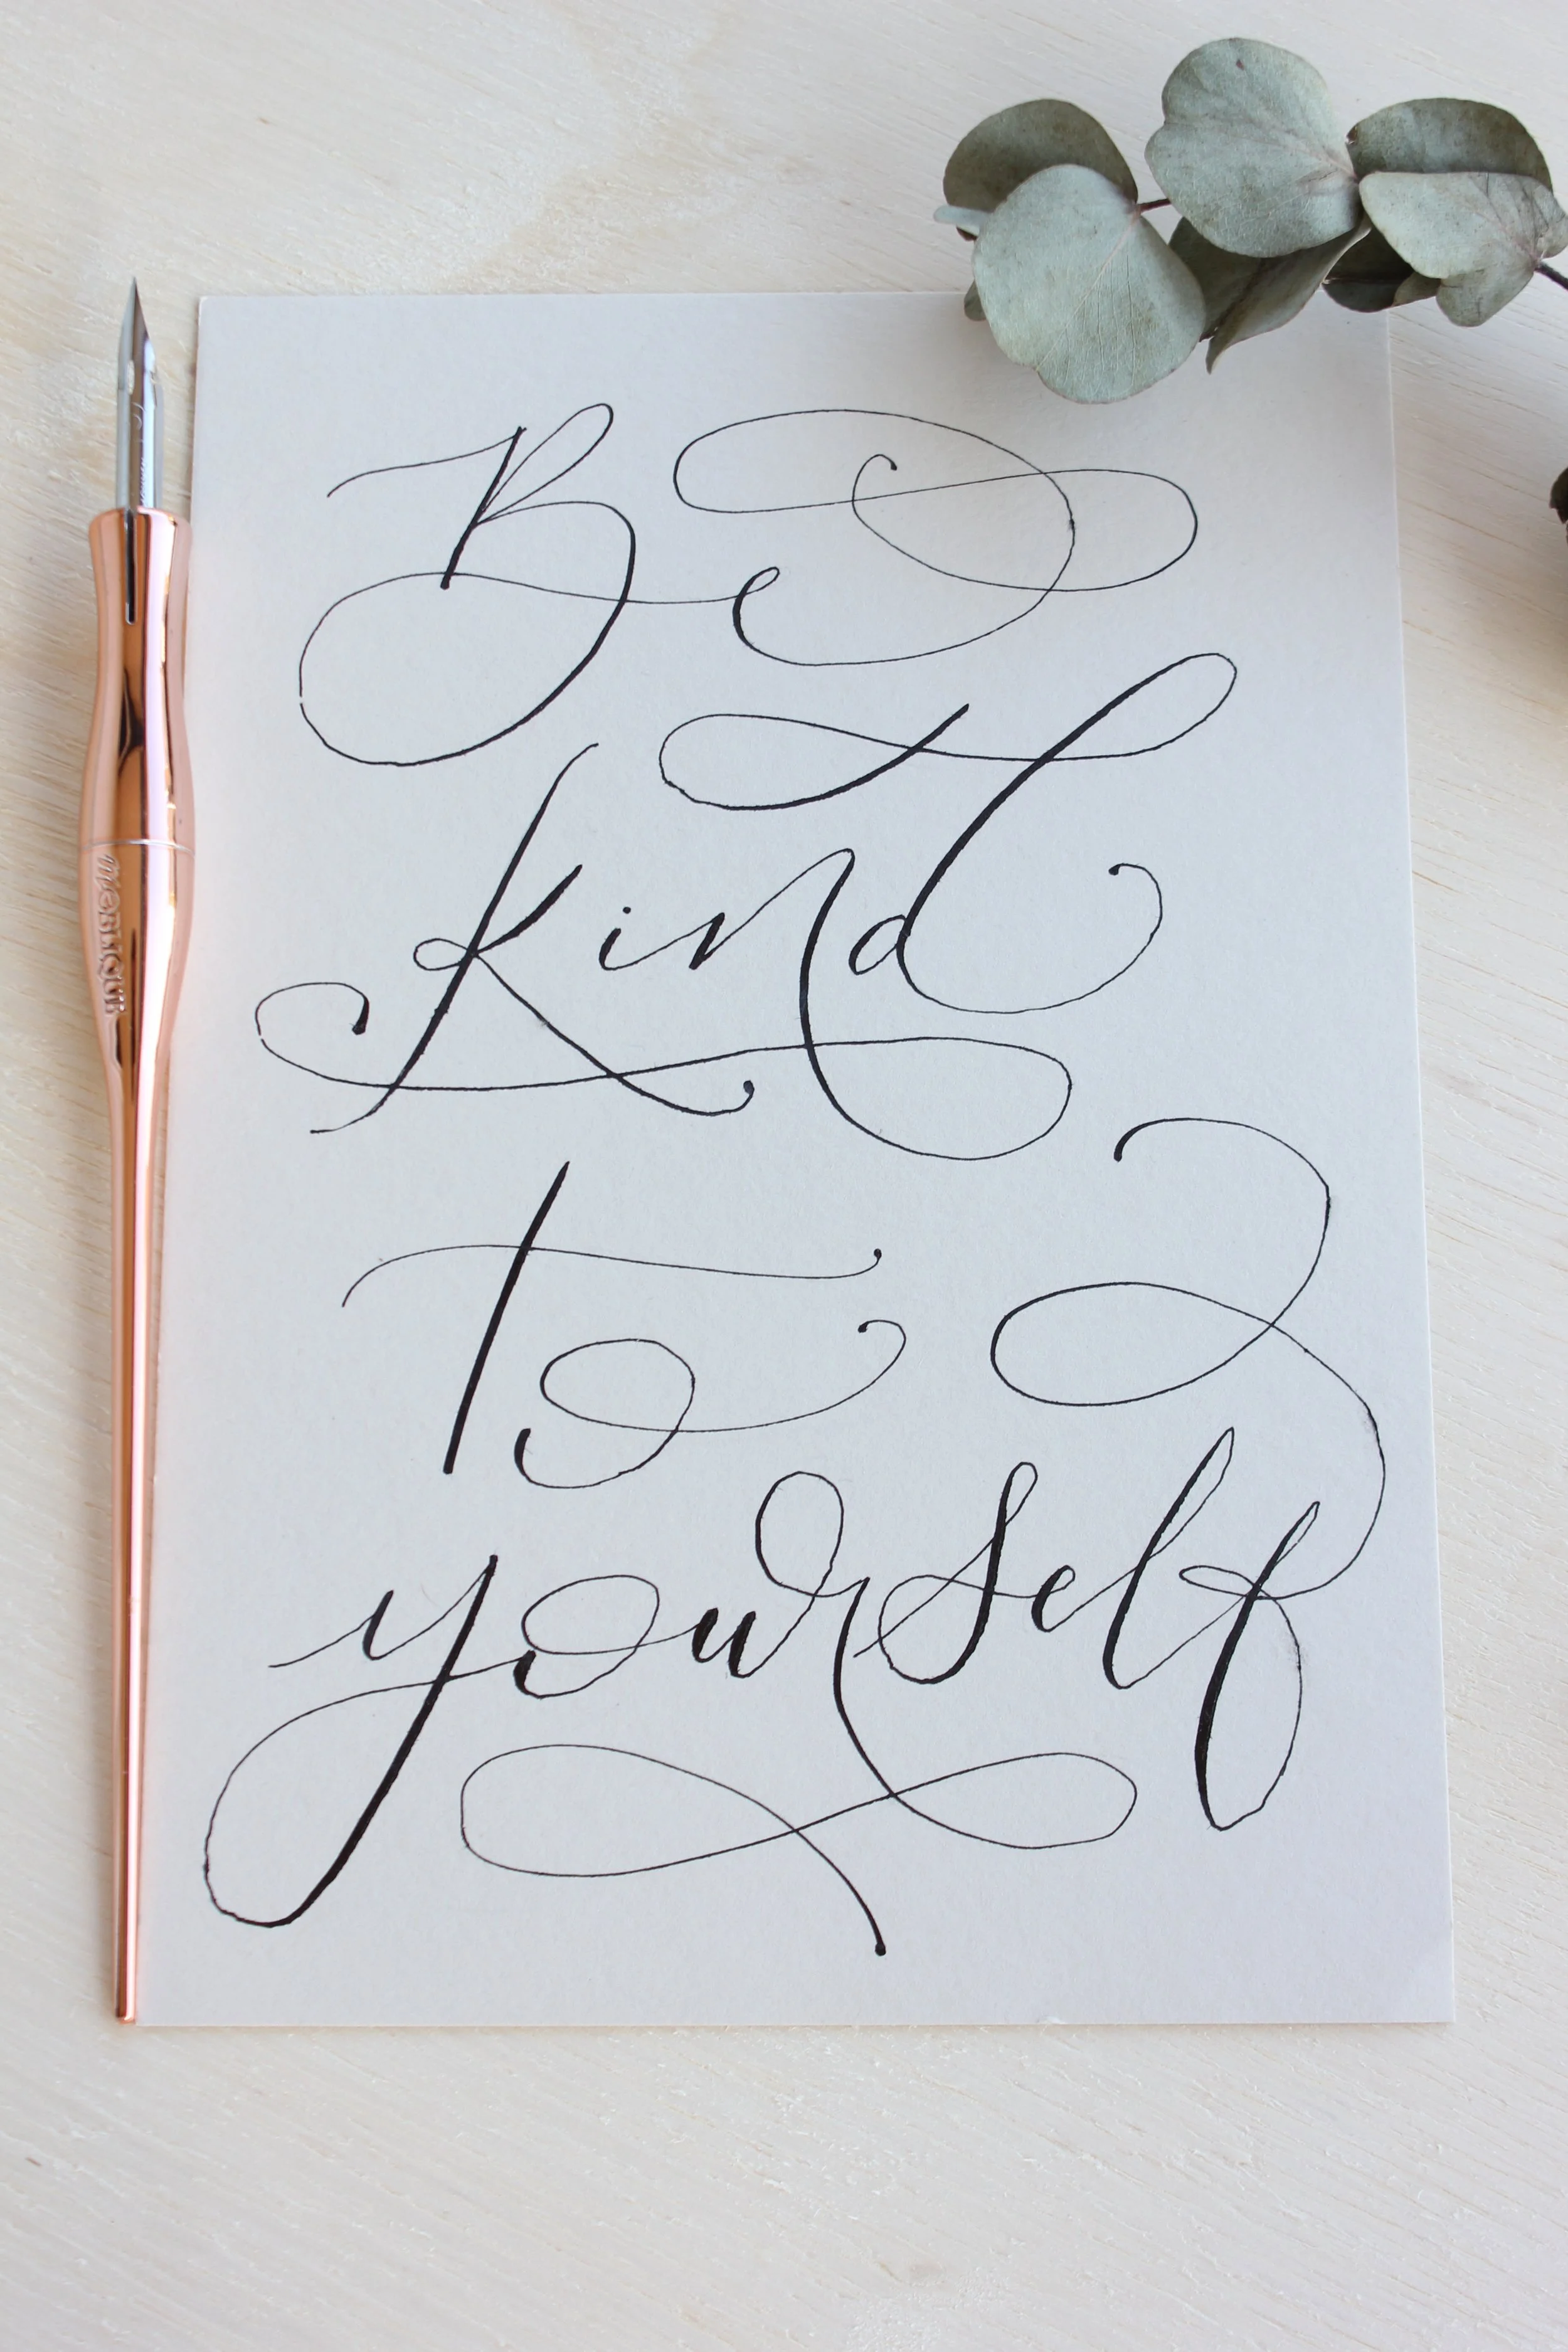 Be
kind
to
yourself